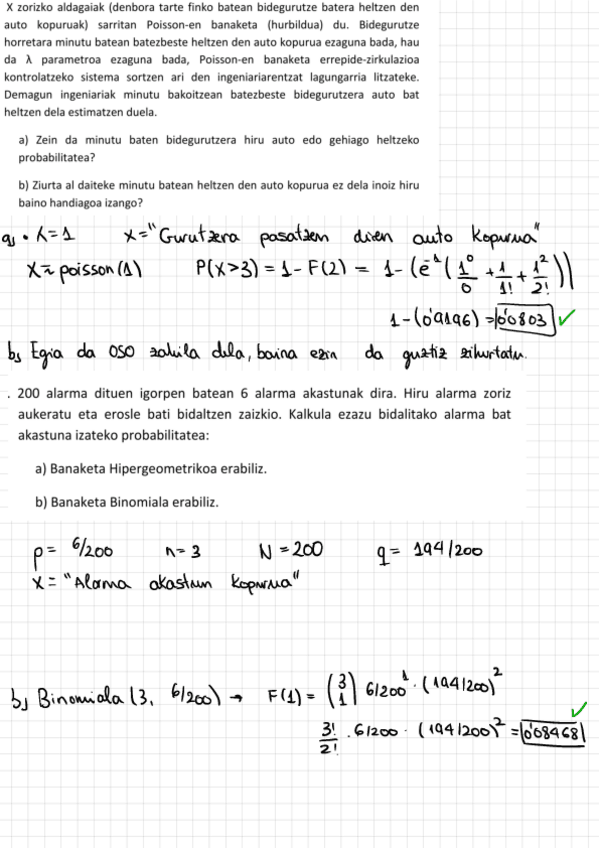 X zorizko aldagaiak (denbora tarte finko batean bidegurutze batera heltzen den
auto kopuruak) sarritan Poisson-en banaketa (hurbildua) du. Bidegurutze
horretara minutu batean batezbeste heltzen den auto kopurua ezaguna bada, hau
da λ parametroa ezaguna bada, Poisson-en banaketa errepide-zirkulazioa
kontrolatzeko sistema sortzen ari den ingeniariarentzat lagungarria litzateke.
Demagun ingeniariak minutu bakoitzean batezbeste bidegurutzera auto bat
heltzen dela estimatzen duela.
a) Zein da minutu baten bidegurutzera hiru auto edo gehiago heltzeko
probabilitatea?
b) Ziurta al daiteke minutu batean heltzen den auto kopurua ez dela inoiz hiru
baino handiagoa izango?
a) • λ=1 X="Gurutzera pasatzen diren auto kopurua"
X≈poisson(1) P(X>3) = 1 - F(2) = 1-(e^-1 (1^0/0 + 1/1! + 1^2/2!))
1-(0'9196) = 0'0803 ✓
b) Egia da oso zaila dela, baina ezin da guztiz zihurtatu.
. 200 alarma dituen igorpen batean 6 alarma akastunak dira. Hiru alarma zoriz
aukeratu eta erosle bati bidaltzen zaizkio. Kalkula ezazu bidalitako alarma bat
akastuna izateko probabilitatea:
a) Banaketa Hipergeometrikoa erabiliz.
b) Banaketa Binomiala erabiliz.
p= 6/200 n=3 N=200 q= 194/200
X = "Alarma akastun kopurua"
b) Binomiala (3, 6/200) → F(1) = (3 1) 6/200^1 · (194/200)^2
3!/2! · 6/200 · (194/200)^2 = 0'08468 ✓